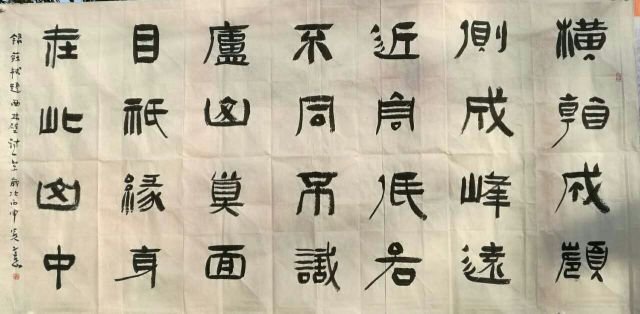 橫看成嶺
側成峰遠
近高低各
不同不識
廬山真面
目祇緣身
在此山中
錄蘇軾題西林壁詩一首歲次丙申